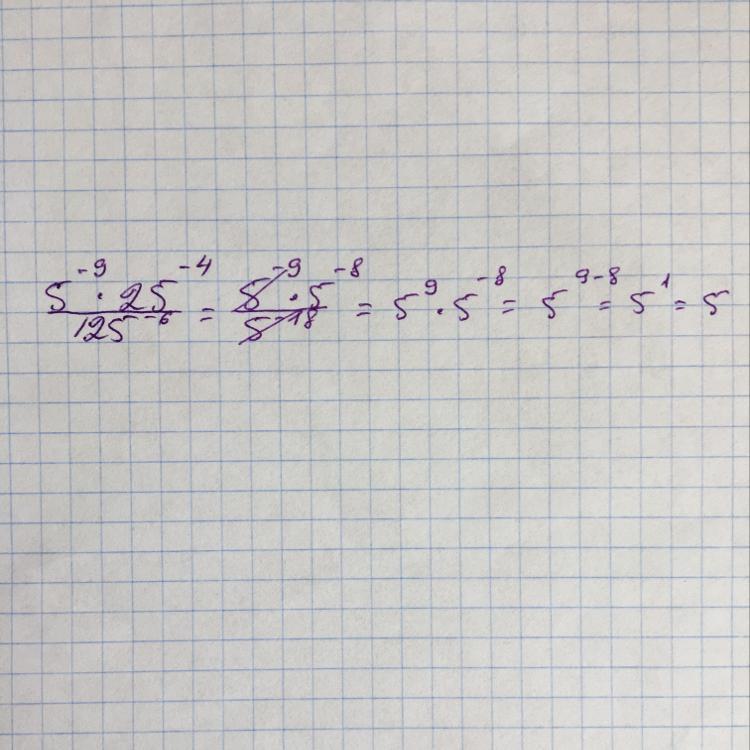 5^-9 · 25^-4 / 125^-6 = 5^-9 · 5^-8 / 5^-18 = 5^9 · 5^-8 = 5^9-8 = 5^1 = 5